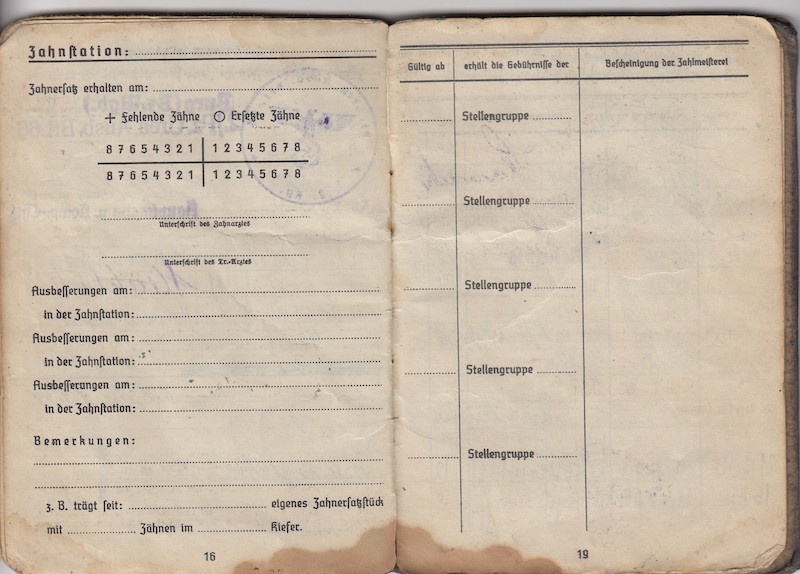 Zahnstation:
Zahnersatz erhalten am:
+ Fehlende Zähne ○ Ersetzte Zähne
8 7 6 5 4 3 2 1 | 1 2 3 4 5 6 7 8
8 7 6 5 4 3 2 1 | 1 2 3 4 5 6 7 8
Unterschrift des Zahnarztes
Unterschrift des Tr.-Arztes
Ausbesserungen am:
in der Zahnstation:
Ausbesserungen am:
in der Zahnstation:
Ausbesserungen am:
in der Zahnstation:
Bemerkungen:
z. B. trägt seit: eigenes Zahnersatzstück
mit Zähnen im Kiefer.
16
Gültig ab | erhält die Gebührnisse der | Bescheinigung der Zahlmeisterei
Stellengruppe
Stellengruppe
Stellengruppe
Stellengruppe
Stellengruppe
19